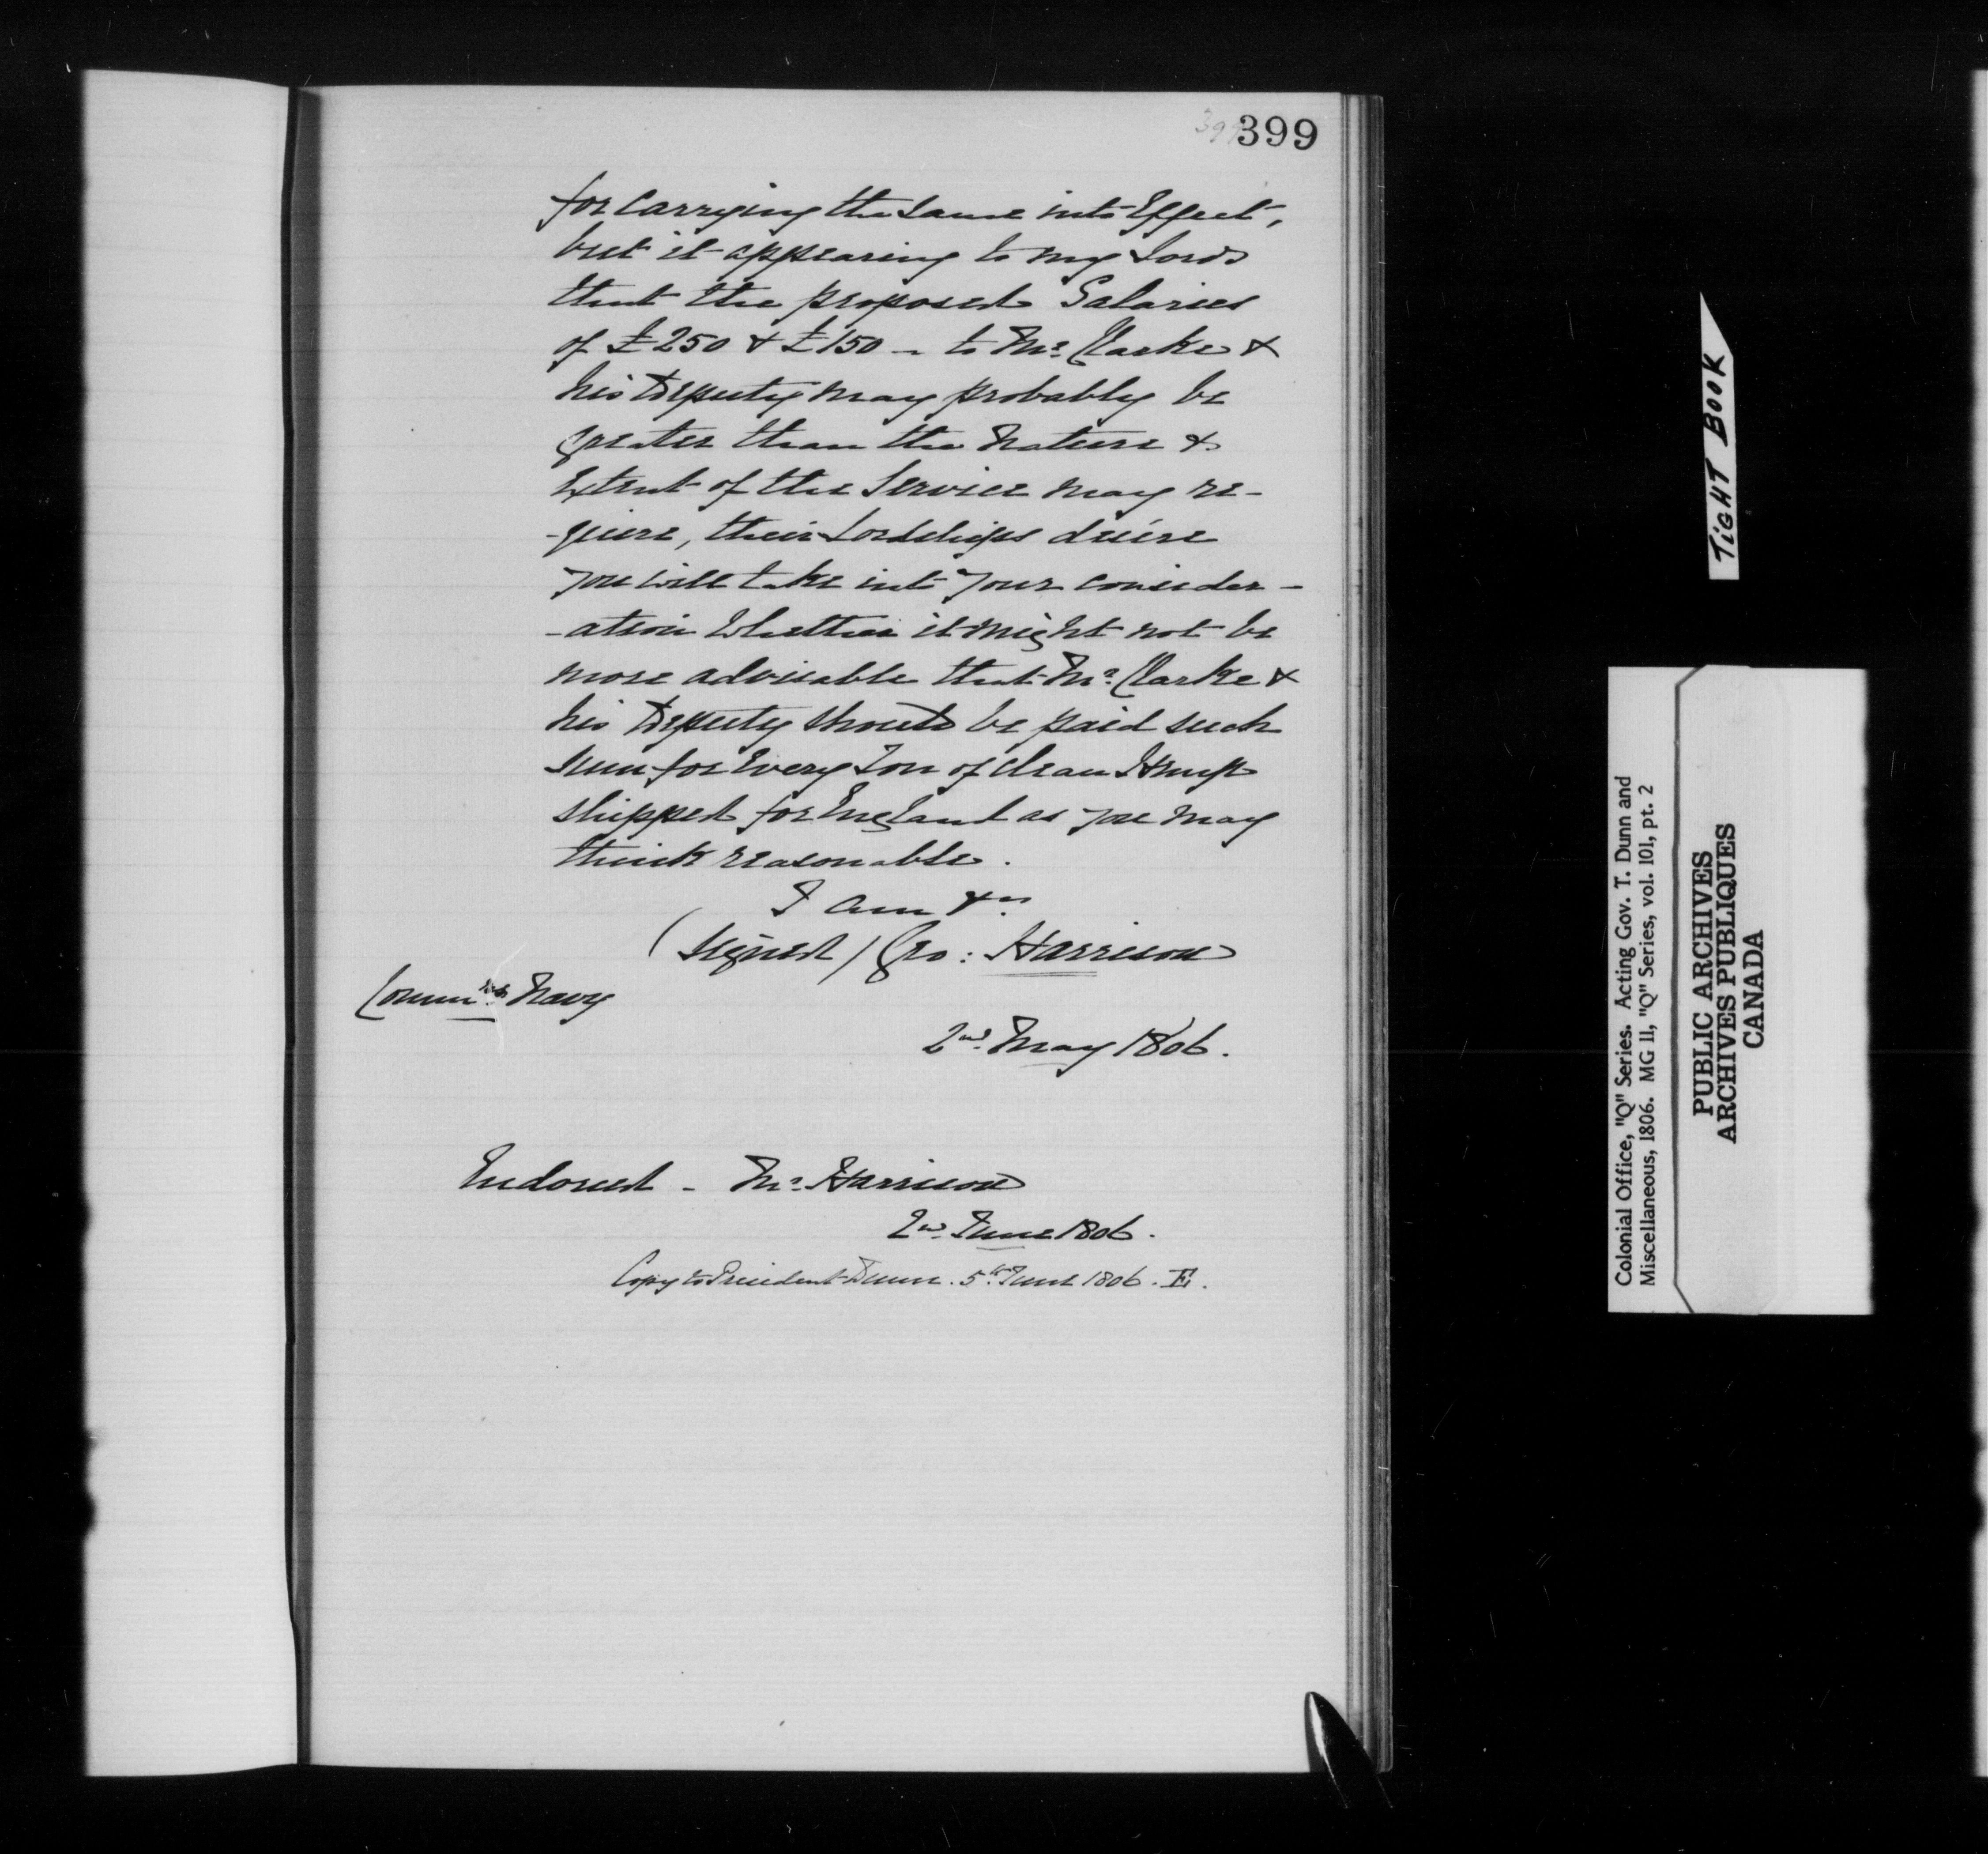 399
399
for carrying the same into Effect,
but it appearing to my Lords
that the proposed Salaries
of £250 & £150 - to Mr. Clarke &
his Deputy may probably be
greater than the Nature &
Extent of the Service may re-
-quire, their Lordships desire
you will take into your consider-
-ation whether it might not be
more adviseable that Mr. Clarke &
his Deputy should be paid such
sum for every Ton of clean Hemp
shipped for England as you may
think reasonable.
I am &c.
(Signed) Geo: Harrison
Commrs. Navy
2nd. May 1806.
Endorsed - Mr. Harrison
2nd. June 1806.
Copy to President Dunn. 5th. June 1806. E.
TIGHT BOOK
Colonial Office, "Q" Series. Acting Gov. T. Dunn and
Miscellaneous, 1806. MG 11, "Q" Series, vol. 101, pt. 2
PUBLIC ARCHIVES
ARCHIVES PUBLIQUES
CANADA